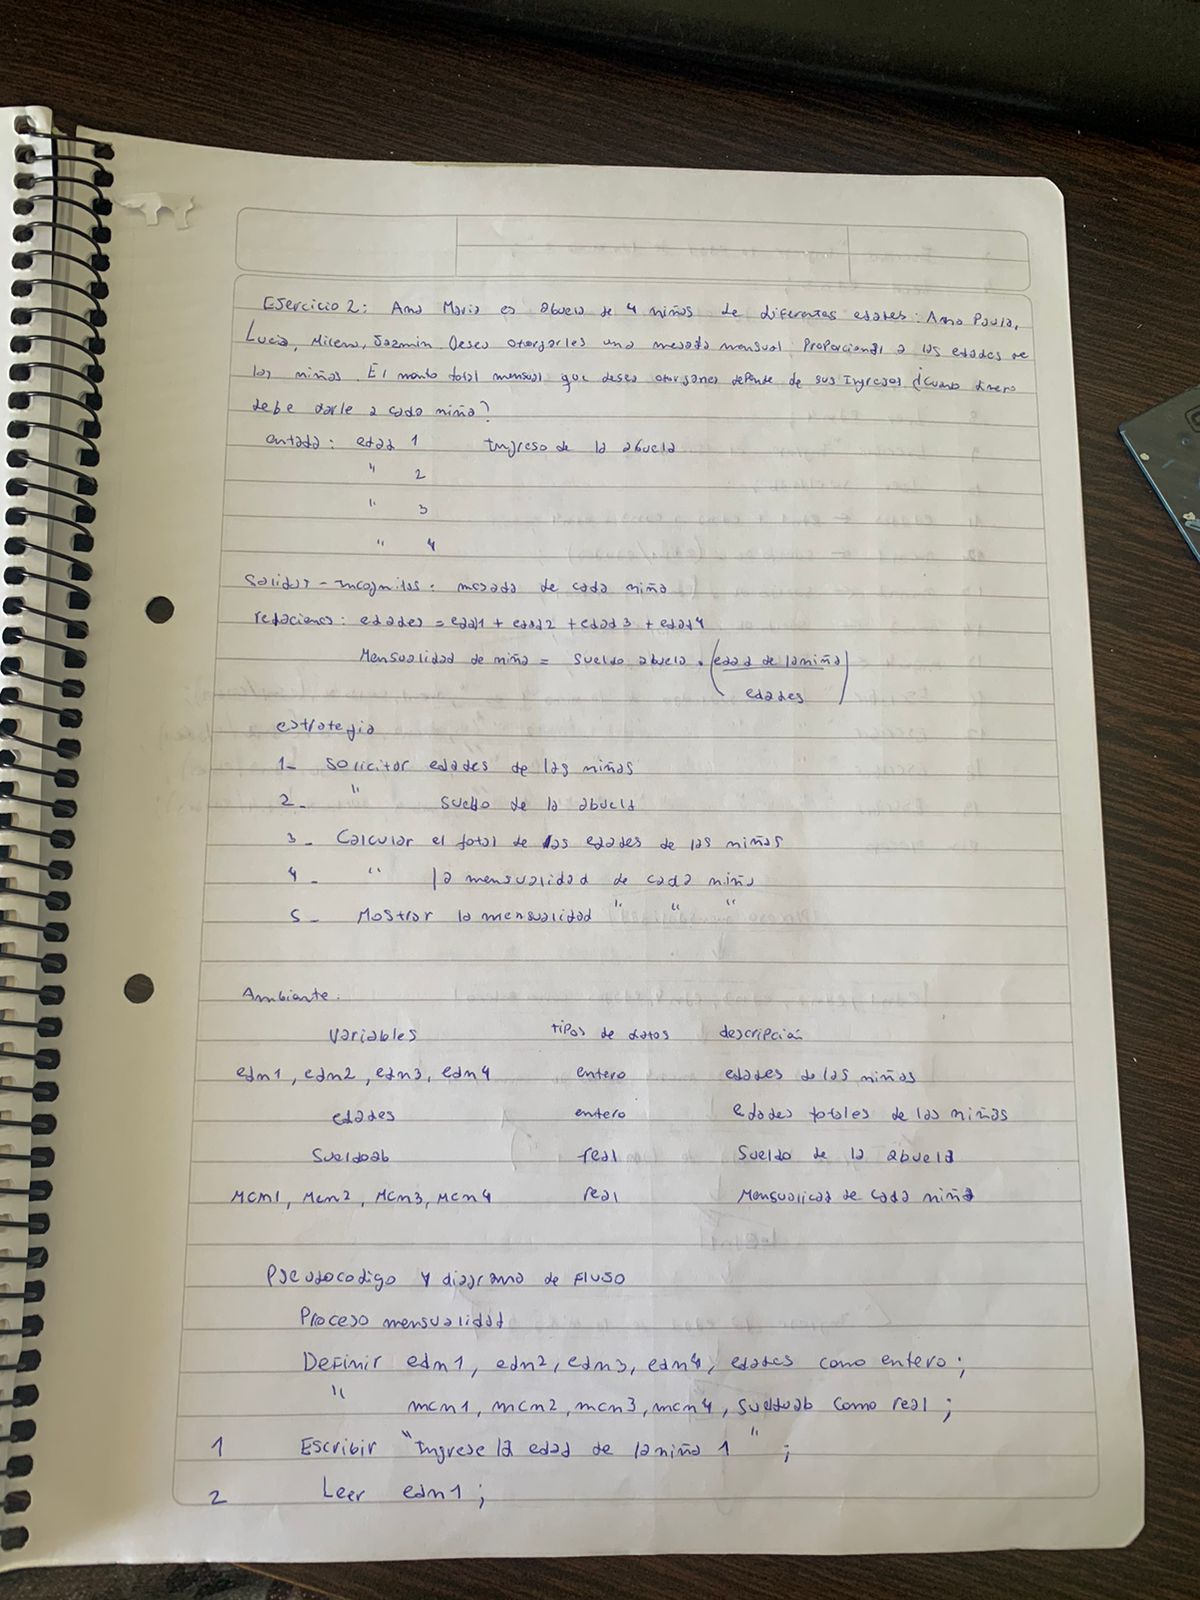 Ejercicio 2: Ana Maria es abuela de 4 niñas de diferentes edades: Ana Paula,
Lucia, Milena, Jazmin. Desea otorgarles una mesada mensual proporcional a las edades de
las niñas. El monto total mensual que desea otorgarles depende de sus Ingresos ¿cuanto dinero
debe darle a cada niña?
entada: edad 1 Ingreso de la abuela
" 2
" 3
" 4
Salidas - Incognitas: mesada de cada niña
relaciones: edades = edad1 + edad2 + edad3 + edad4
Mensualidad de niña = sueldo abuela . (edad de la niña
edades)
estrategia
1- Solicitar edades de las niñas
2- " sueldo de la abuela
3- Calcular el total de las edades de las niñas
4- " la mensualidad de cada niña
5- Mostrar la mensualidad " " "
Ambiente:
Variables tipos de datos descripción
edn1, edn2, edn3, edn4 entero edades de las niñas
edades entero edades totales de las niñas
Sueldoab real Sueldo de la abuela
Mcn1, Mcn2, Mcn3, Mcn4 real Mensualidad de cada niña
Pseudocodigo y diagrama de FLUJO
Proceso mensualidad
Definir edn1, edn2, edn3, edn4, edades como entero;
" mcn1, mcn2, mcn3, mcn4, sueldoab como real;
1 Escribir "Ingrese la edad de la niña 1";
2 Leer edn1;